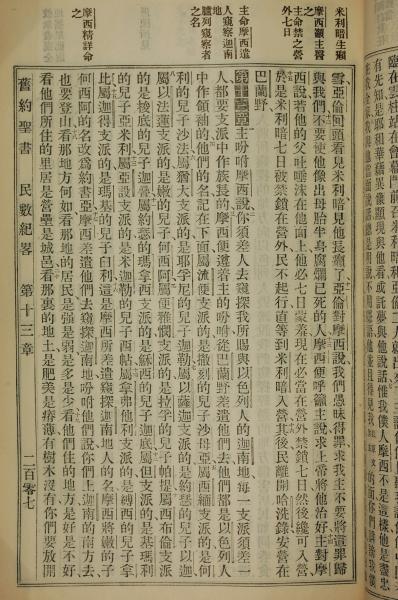 米利暗生癩
摩西籲主醫之
主命禁之營外七日
主命摩西遣人窺察迦南
臚列窺察者之名
摩西精詳命之
雪亞倫回頭看見米利暗見他長癩了亞倫對摩西說我們愚昧得罪求我主不要將這罪歸
與我們不要使他像出母胎半身腐爛已死的人摩西便呼籲主說求上帝將他治好主對摩
西說若他的父吐唾沫在他面上他必七日蒙羞現在必當在營外禁鎖七日然後纔可入營
於是米利暗七日被禁鎖在營外民不起行直等到米利暗入營其後民離開哈洗錄安營在
巴蘭野
第十三章主吩咐摩西說你須差人去窺探我所賜與以色列人的迦南地每一支派須差一
人都要支派中作族長的摩西便遵着主的吩咐從巴蘭野差遣他們去他們都是以色列人
中作領袖的他們的名記在下面屬流便支派的是撒刻的兒子沙母亞屬西緬支派的是何
利的兒子沙法屬猶大支派的是耶孚尼的兒子迦勒屬以薩迦支派的是約瑟的兒子以迦
屬以法蓮支派的是嫩的兒子何西阿屬便雅憫支派的是拉孚的兒子帕提屬西布倫支派
的是梭底的兒子迦疊屬約瑟的瑪拿西支派的是穌西的兒子迦底屬但支派的是基瑪利
的兒子亞米利屬亞設支派的是米迦勒的兒子西帖屬拿弗他利支派的是縛西的兒子拿
比屬迦得支派的是瑪基的兒子臼利這是摩西所差遣窺探迦南地人的名摩西將嫩的子
何西阿的名改爲約書亞摩西差遣他們去窺探迦南地吩咐他們說你們上迦南的南方去
也要登山看那地方何如看那地的居民是强是弱是多是少看他們住的地方是好是不好
看他們所住的里居是營壘是城邑看那裏的地土是肥美是瘠薄有樹木沒有你們要放開
舊約聖書 民數紀畧 第十三章 一百零七